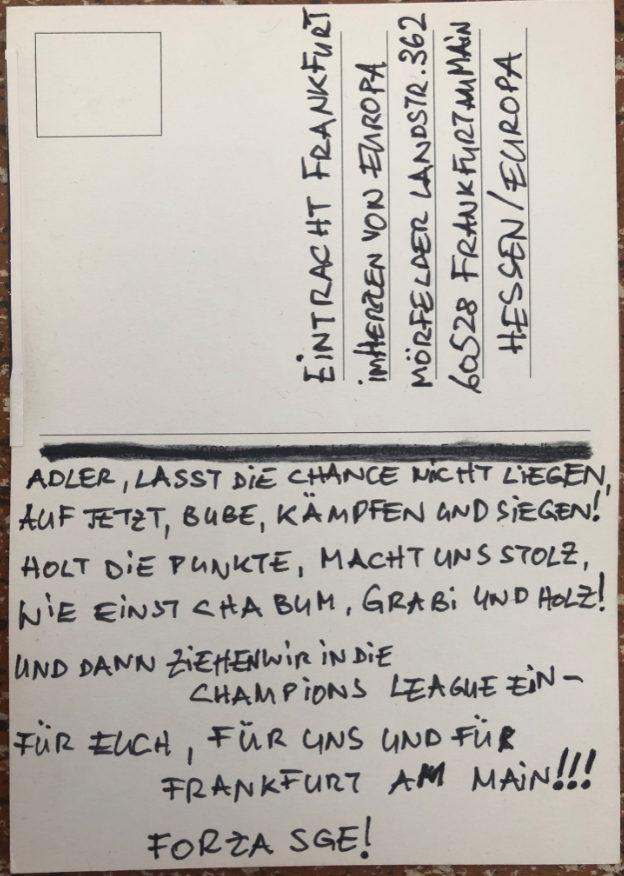 EINTRACHT FRANKFURT
IM HERZEN VON EUROPA
MÖRFELDER LANDSTR. 362
60528 FRANKFURT AM MAIN
HESSEN/EUROPA
ADLER, LASST DIE CHANCE NICHT LIEGEN,
AUF JETZT, BUBE, KÄMPFEN UND SIEGEN!
HOLT DIE PUNKTE, MACHT UNS STOLZ,
WIE EINST CHA BUM, GRABI UND HOLZ!
UND DANN ZIEHEN WIR IN DIE
CHAMPIONS LEAGUE EIN-
FÜR EUCH, FÜR UNS UND FÜR
FRANKFURT AM MAIN!!!
FORZA SGE!